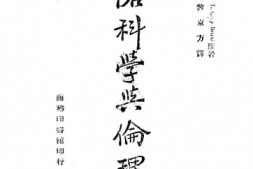 Lévy-Bruhl 原著
黎東方譯
科學與倫理
商務印書館印行